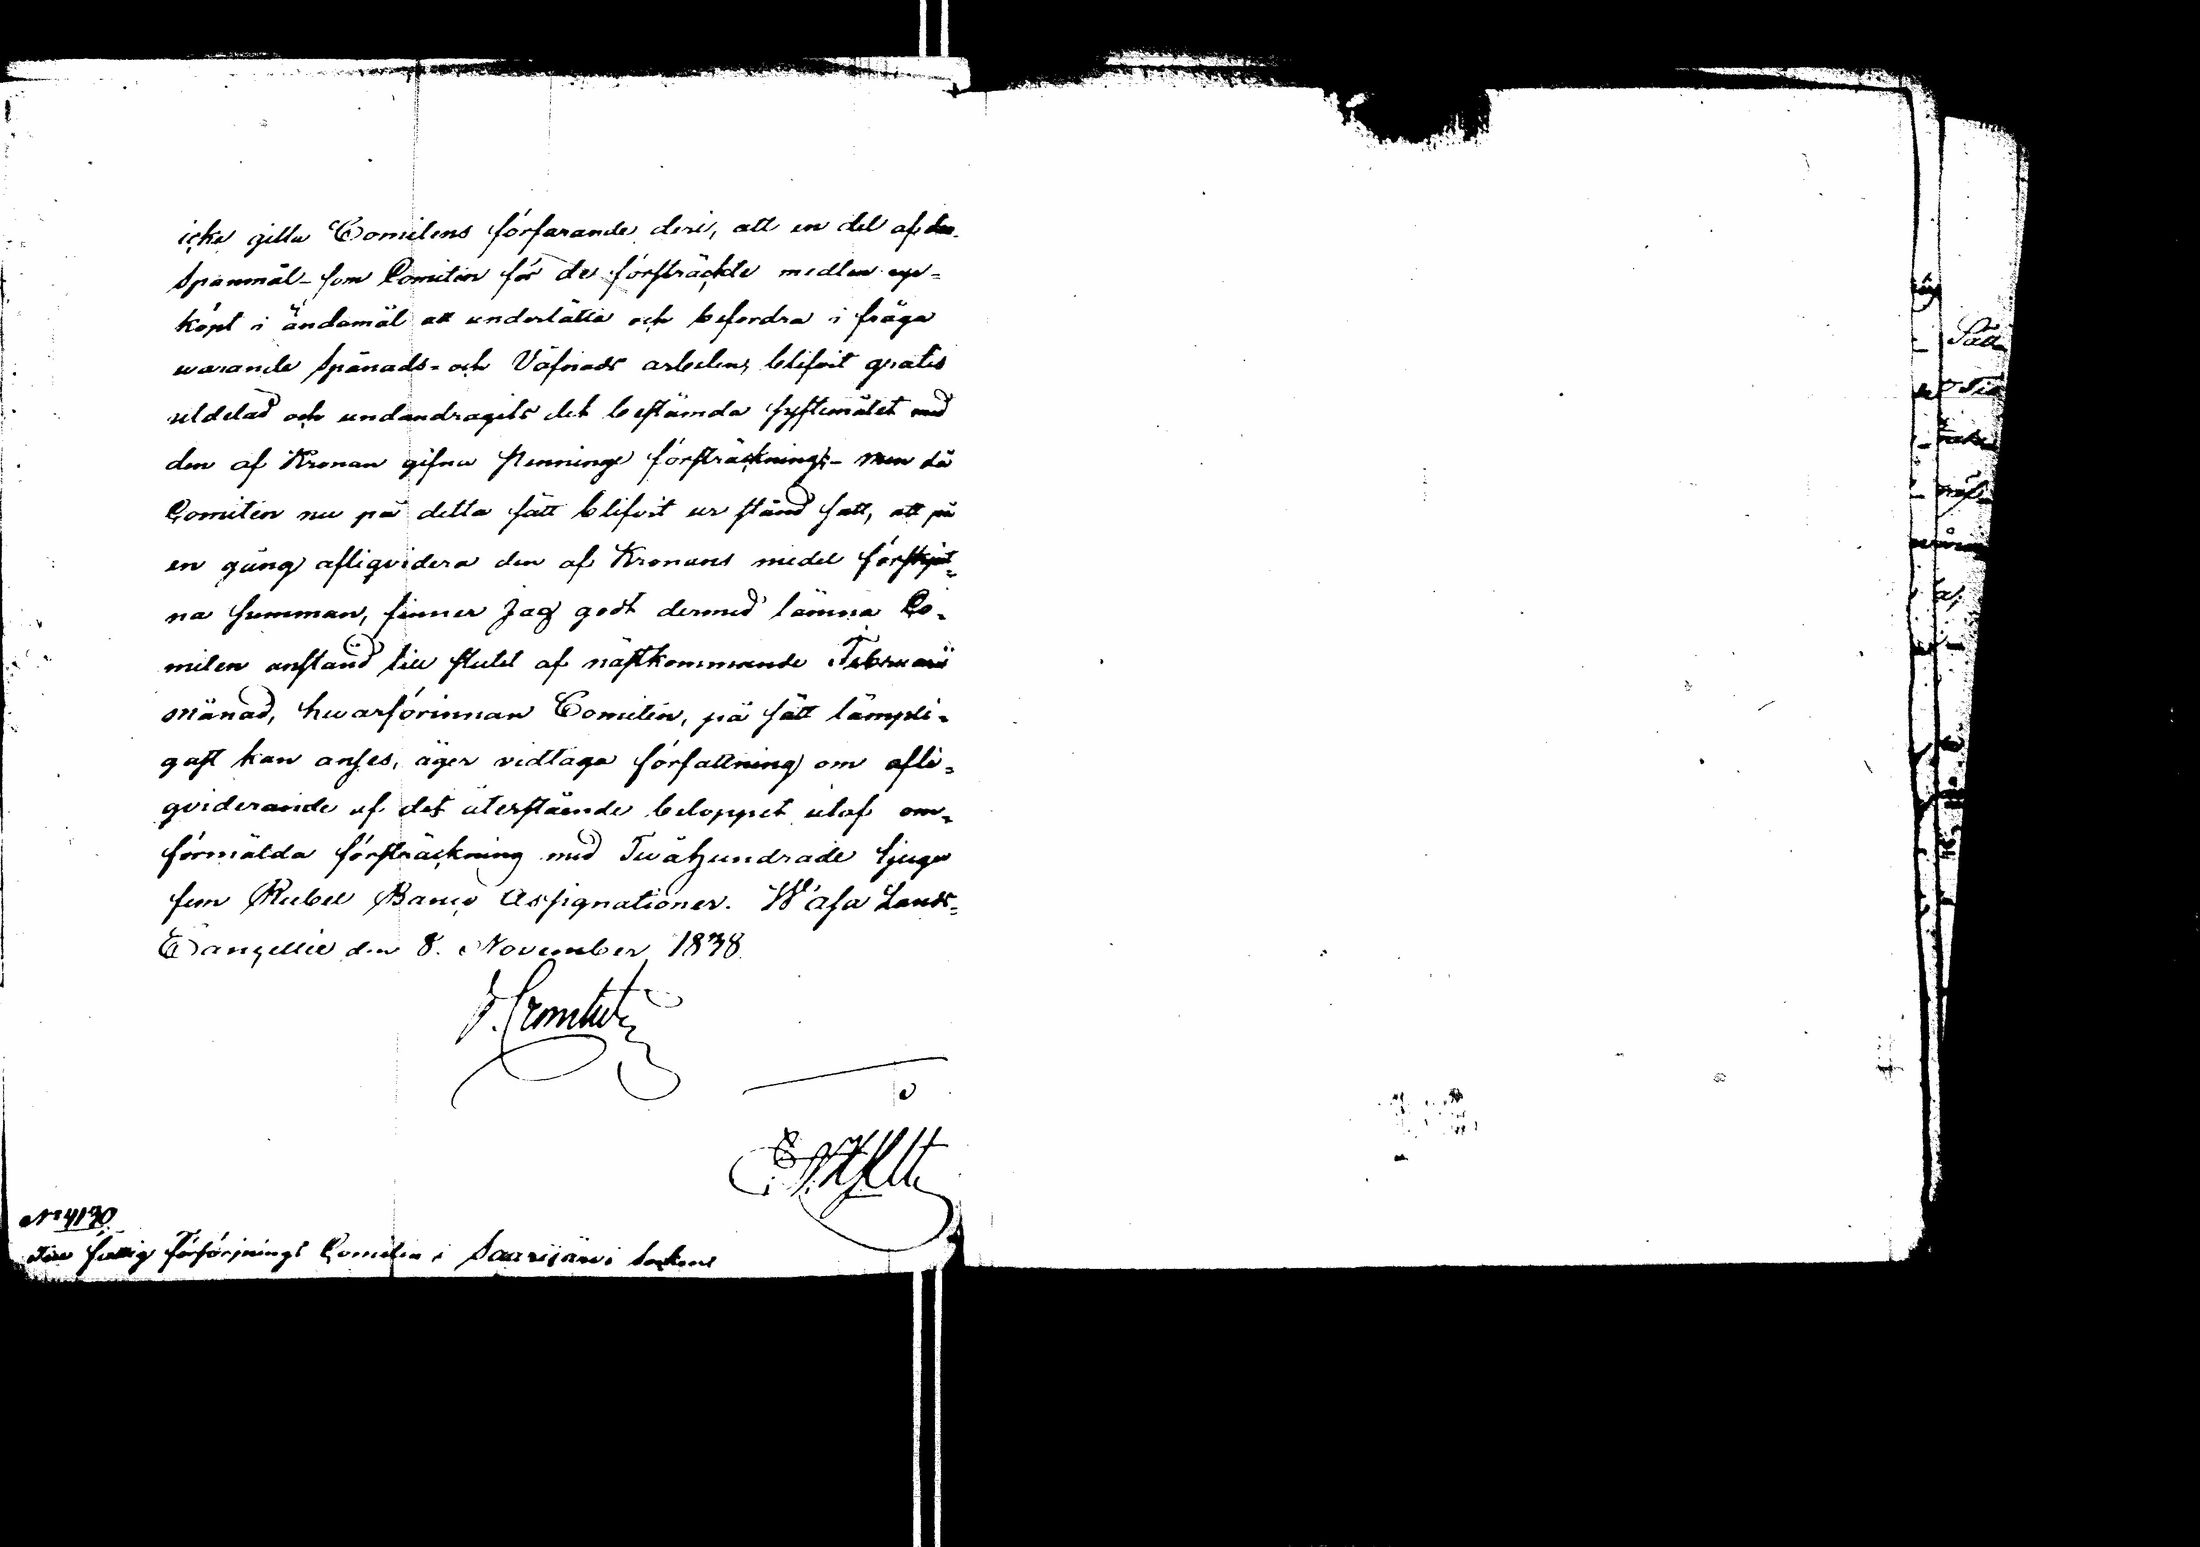 icke gilla Comitens förfarande deri, att en del af den
Spanmål som Comitén för de försträckte medlen upp-
köpt i ändamål att underlätta och befordra i fråga
warande Spånads- och Väfnads arbeten, blifvit gratis
utdelad och undandragits det bestämda systemålet med
den af Kronan gifna Pennings försträckning,- men då
Comitén nu på detta sätt blifvit ur stånd satt, att på
en gång afliqvidera den af Kronans medel förskjut-
na summan, finner Jag godt dermed lämna Co-
miten anstånd till slutet af nästkommande Februarii
Månad, hwarförinnan Comitén, på sätt lämpli-
gast kan anses, äger vidtaga författning om afli-
qviderande af det återstående beloppet utaf om-
förmälda försträckning med Twåhundrade tjugu
fem Rubel Banco Assignationer. Wasa Lands-
Cancellie den 8. November 1838.
No 4170
Till fattig försörjnings Comitén i Saarijärvi Socken